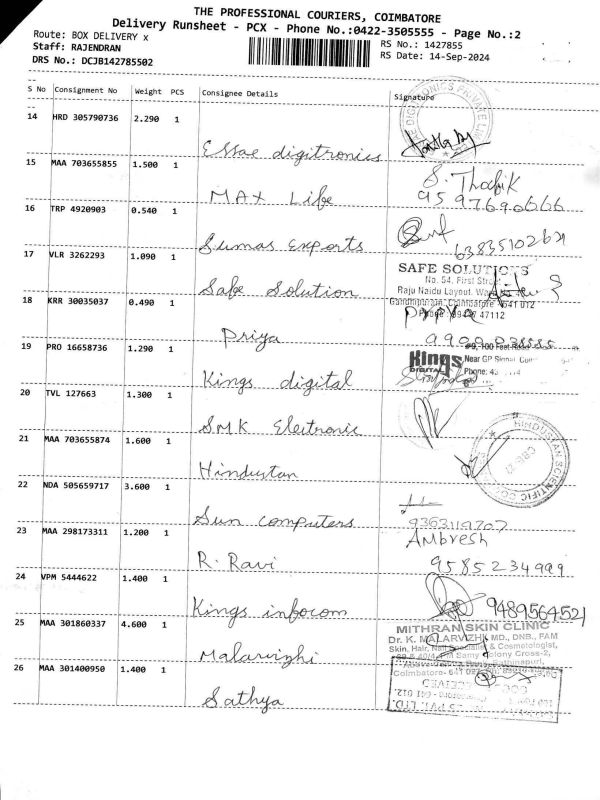 THE PROFESSIONAL COURIERS, COIMBATORE
Delivery Runsheet - PCX - Phone No.:0422-3505555 - Page No.:2
Route: BOX DELIVERY x
RS No.: 1427855
Staff: RAJENDRAN
RS Date: 14-Sep-2024
DRS No.: DCJB142785502
S No Consignment No Weight PCS Consignee Details Signature
14 HRD 305790736 2.290 1
Essae digitronics
15 MAA 703655855 1.500 1
S. Thofik
MAX Life 9597690666
16 TRP 4920903 0.540 1
Sumas Exports 6383510269
17 VLR 3262293 1.090 1
SAFE SOLUTIONS
No. 54, First
Safe Solution Raju Naidu Layout,
Gandhipuram, Coimbatore - 641 012
18 KRR 30035037 0.490 1
Priya
Priya
19 PRO 16658736 1.290 1
Kings Near GP Signal
DIGITAL Phone:
Kings digital
20 TVL 127663 1.300 1
SMK Electronic
21 MAA 703655874 1.600 1
HINDUSTAN SCIENTIFIC
Hindustan
22 NDA 505659717 3.600 1
Sun computers 9363119707
23 MAA 298173311 1.200 1
Ambresh
R. Ravi 9585234999
24 VPM 5444622 1.400 1
Kings infocom 9489564521
25 MAA 301860337 4.600 1
MITHRAN SKIN CLINIC
Dr. K. MALARVIZHI MD., DNB., FAM
Skin, Hair, Nail Specialist & Cosmetologist,
Malarvizhi
26 MAA 301400950 1.400 1
Coimbatore- 641
RECEIVED
Sathya
PVT. LTD.